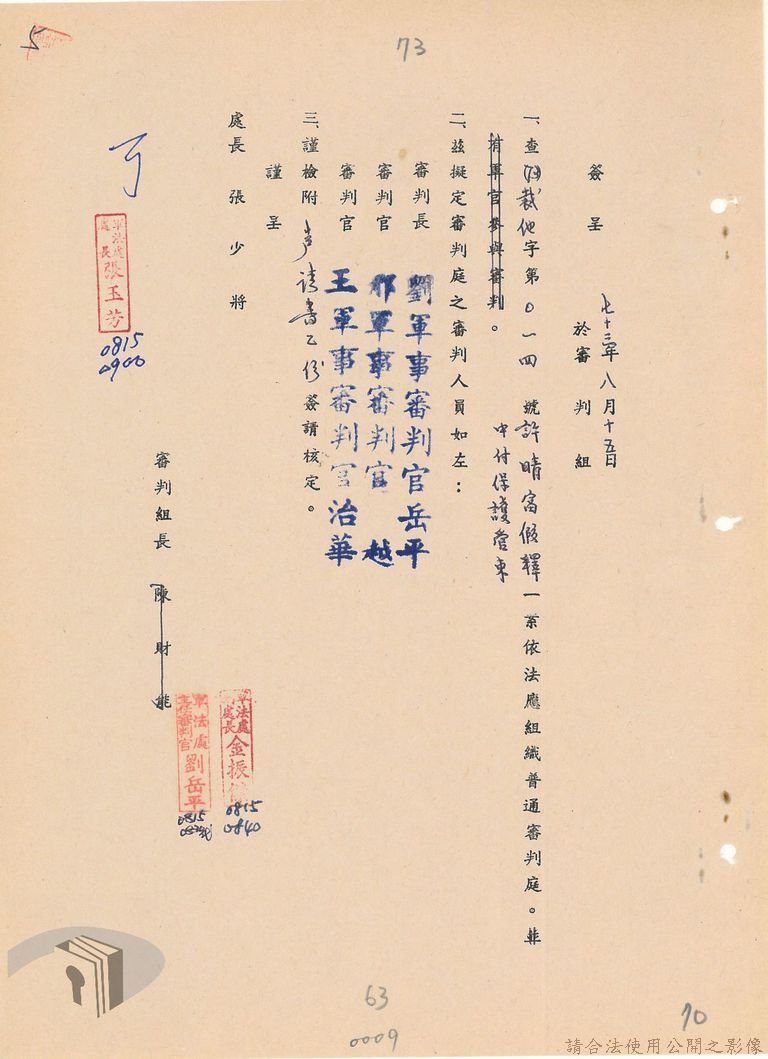 73
5
簽呈
七十三年八月十五日
於審判組
一、查(73)裁他字第0一四號許晴富假釋中付保護管束一案依法應組織普通審判庭。並
有軍官參與審判。
二、茲擬定審判庭之審判人員如左：
審判長 劉軍事審判官岳平
審判官 邢軍事審判官 越
審判官 王軍事審判官治華
三、謹檢附聲請書乙份簽請核定。
謹呈
處長 張少將
審判組長 陳財能
可
軍法處處長張玉芳
0815
0900
軍法處
處長金振
0815
0840
軍法處
主任審判官劉岳平
0815
63
0009
70
請合法使用公開之影像